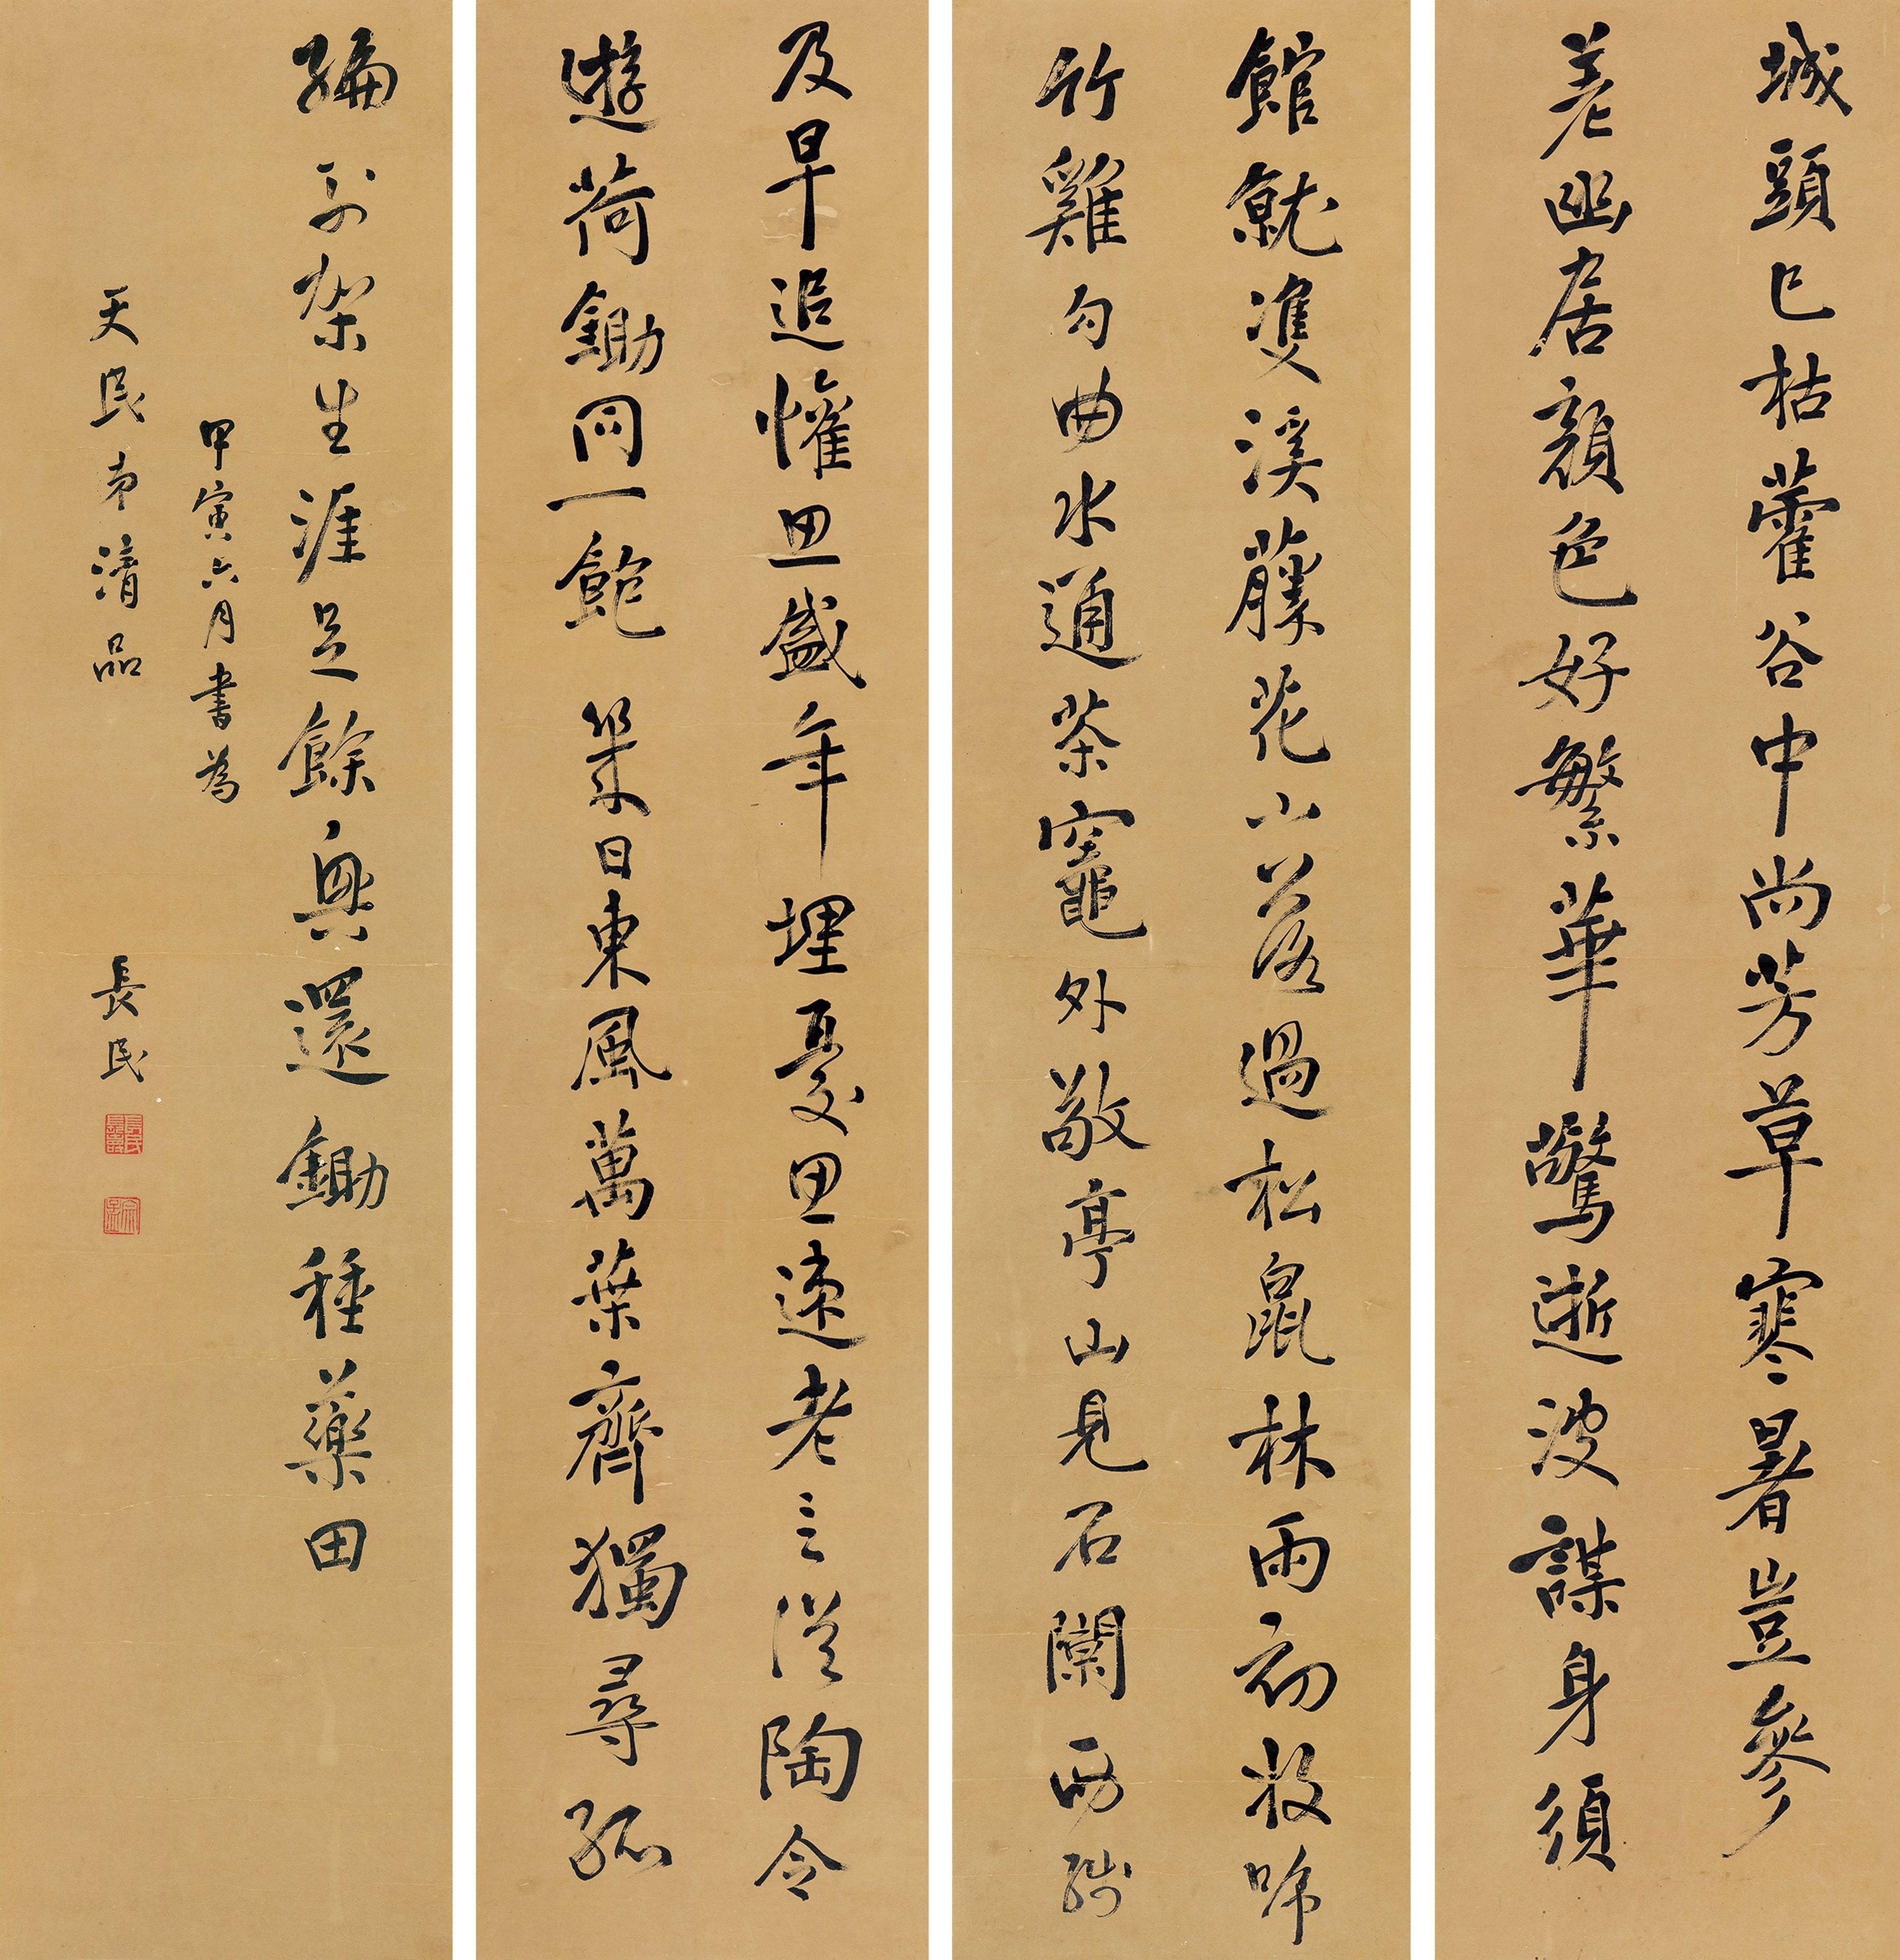 城頭已枯藿谷中尚芳草寒暑豈參
差幽居顏色好繁華驚逝波謀身須
及早追懽思盛年埋憂思速老言從陶令
遊荷鋤同一飽 築
館就雙溪藤花小落過松鼠林雨初收啼
竹雞勾曲水通茶竈外敬亭山見石闌西殘
日東風萬葉齊獨尋孤
編列架生涯足餘興還鋤種藥田
甲寅六月書為
天民弟清品
長民